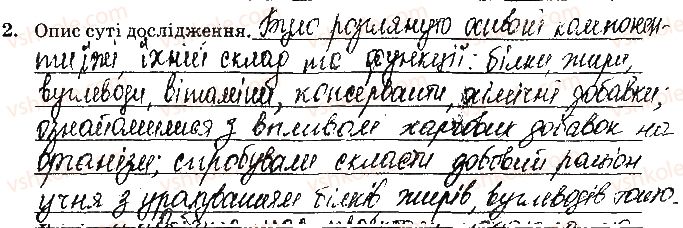 2. Опис суті дослідження. Було розглянуто основні компонен-
ти їжі їхній склад та функції: білки, жири,
вуглеводи, вітаміни, консерванти, хімічні добавки;
ознайомилися з впливом харчових добавок на
організм; спробували скласти добовий раціон
учня з урахуванням білків жирів, вуглеводів